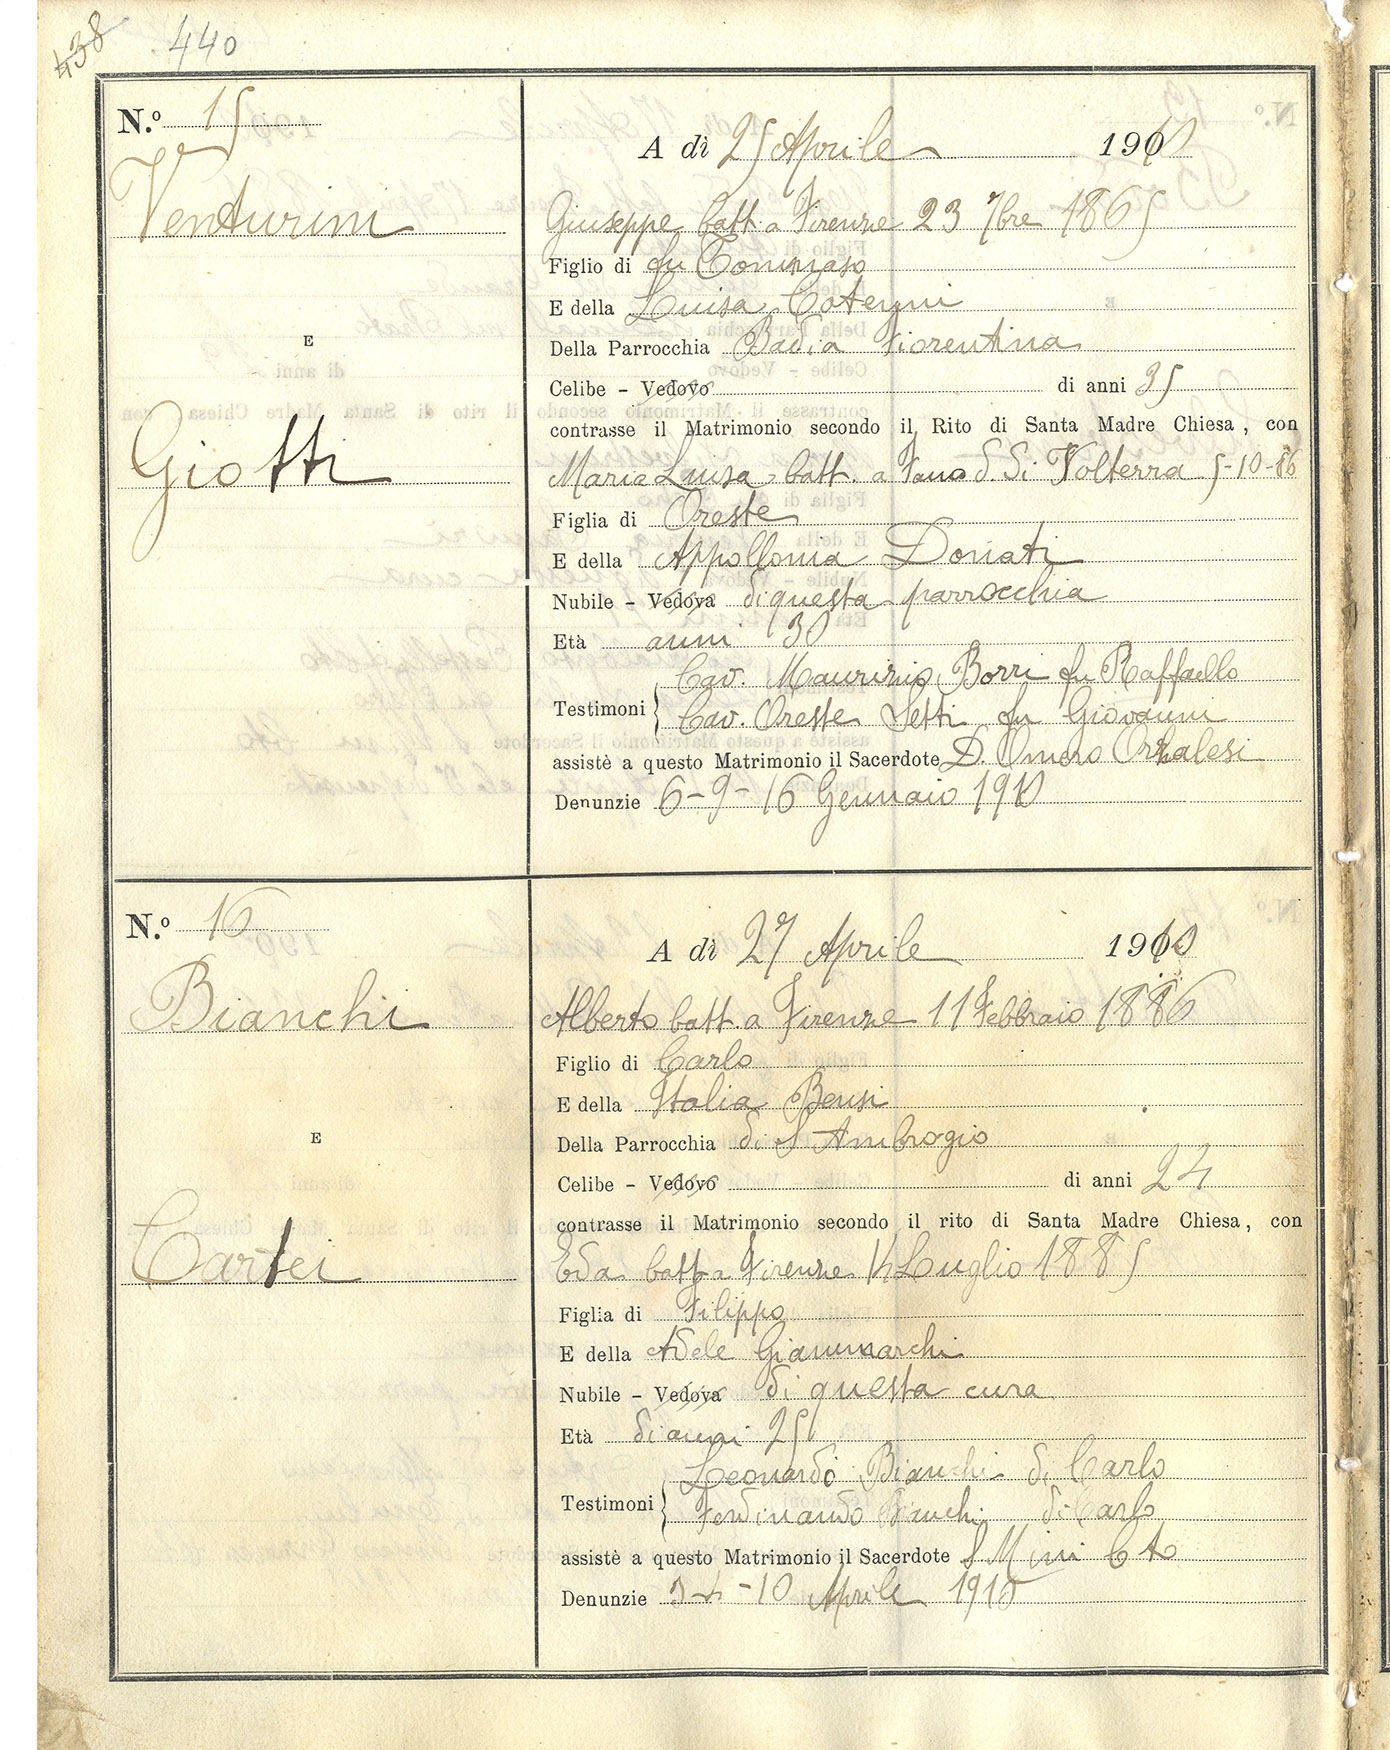 438
440
N.º 15
A dì 25 Aprile 1910
Venturini
Giuseppe batt. a Firenze 23 7bre 1865
Figlio di fu Tommaso
E della Luisa Coterini
E
Della Parrocchia Badia Fiorentina
Celibe - Vedovo di anni 35
contrasse il Matrimonio secondo il Rito di Santa Madre Chiesa, con
Giotti
Maria Luisa batt. a d. di Volterra 5-10-86
Figlia di Oreste
E della Appollonia Donati
Nubile - Vedova di questa parrocchia
Età anni 30
Testimoni Cav. Maurizio Borri fu Raffaello
Cav. Oreste Setti fu Giovanni
assistè a questo Matrimonio il Sacerdote D. Omero Orzalesi
Denunzie 6-9-16 Gennaio 1910
N.º 16
A dì 27 Aprile 1910
Bianchi
Alberto batt. a Firenze 11 Febbraio 1886
Figlio di Carlo
E della Italia Bensi
E
Della Parrocchia di S Ambrogio
Celibe - Vedovo di anni 24
contrasse il Matrimonio secondo il rito di Santa Madre Chiesa, con
Cartei
Eda batt a Firenze 14 Luglio 1885
Figlia di Filippo
E della Adele Giammarchi
Nubile - Vedova di questa cura
Età di anni 25
Testimoni Leonardo Bianchi di Carlo
Ferdinando Bianchi di Carlo
assistè a questo Matrimonio il Sacerdote S Mini Cto
Denunzie 3-4-10 Aprile 1910